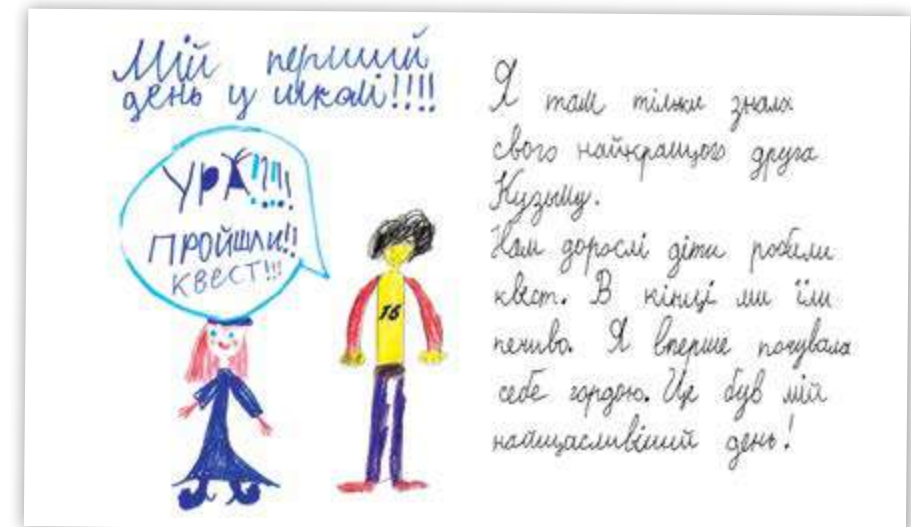 Мій перший
день у школі!!!!
УРА!!!!
ПРОЙШЛИ!!
КВЕСТ!!!
16
Я там тільки знала
свого найкращого друга
Кузьму.
Нам дорослі діти робили
квест. В кінці ми їли
печиво. Я вперше почувала
себе гордою. Це був мій
найщасливіший день!